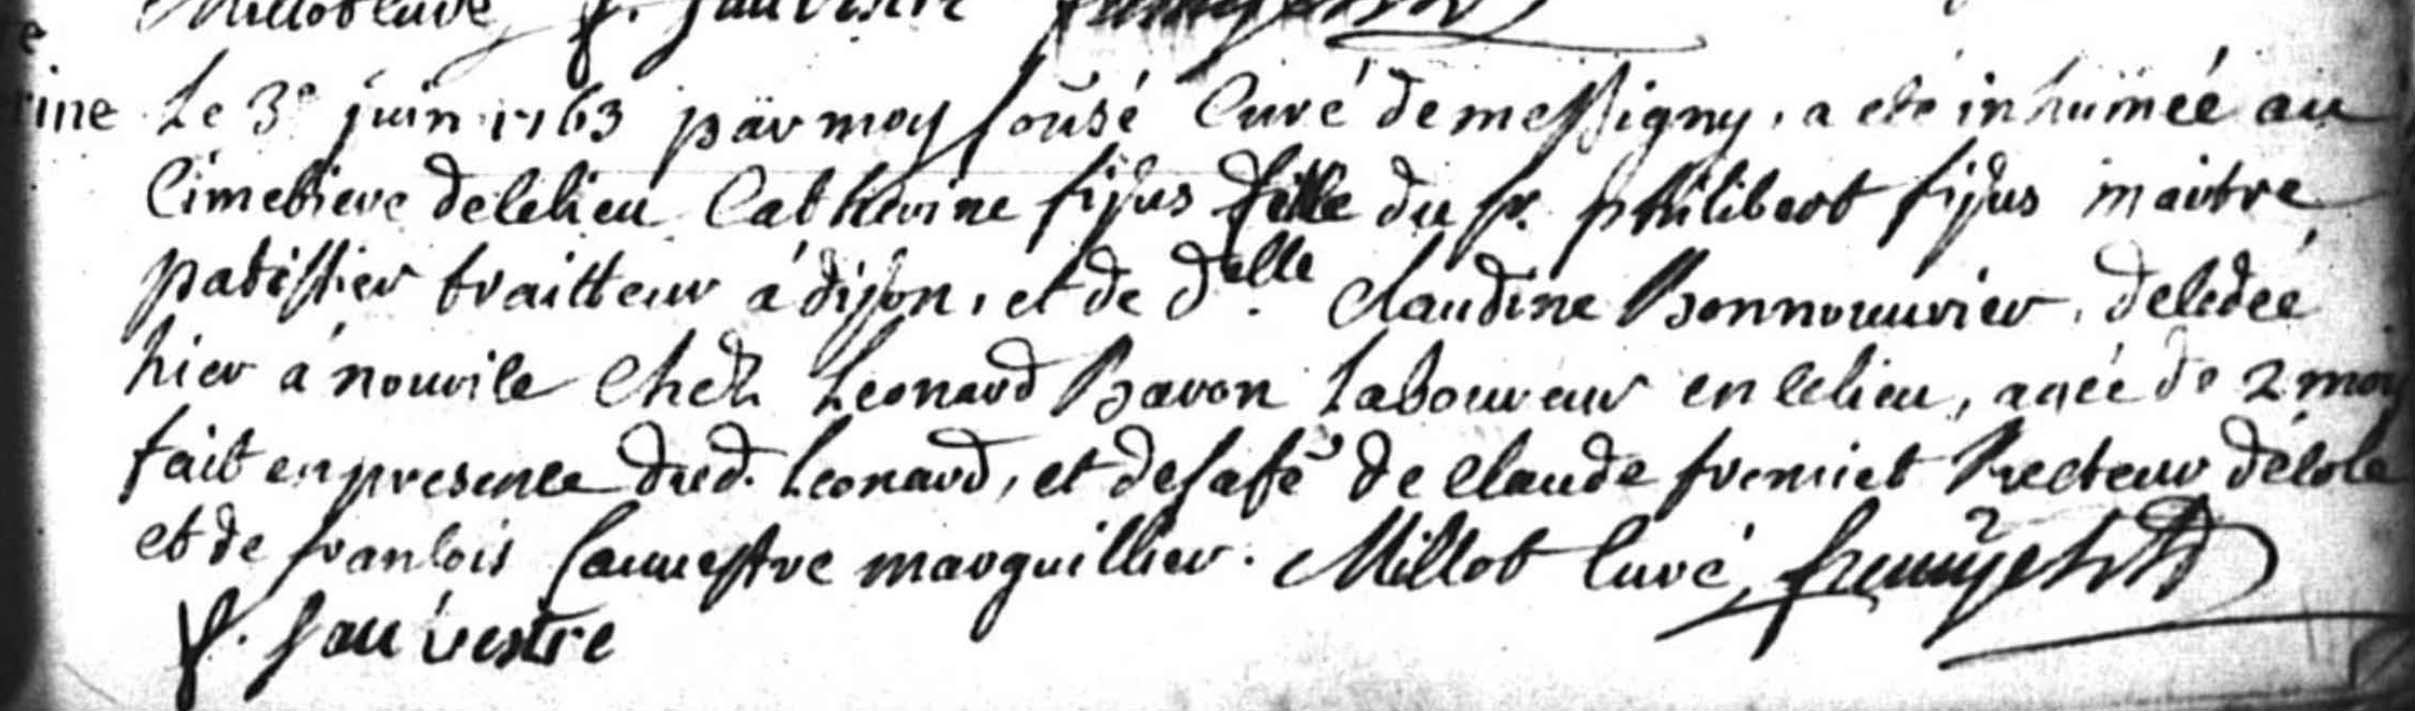 Millot curé f. sauvestre
ine Le 3e juin 1763 par moy sousé curé de messigny, a eté inhumée au
cimetiere de ce lieu Catherine fijus fille du sr. philibert fijus maitre
patissier traitteur a dijon, et de delle Claudine Bonnouvrier, decedée
hier a nourice chez Leonard Baron Laboureur en ce lieu, agée de 2 moys
fait en presence dud. Leonard, et de sa fe de claude fremiet Recteur décole
et de francois sauvestre marguillier. Millot curé, fremyet
f. sauvestre